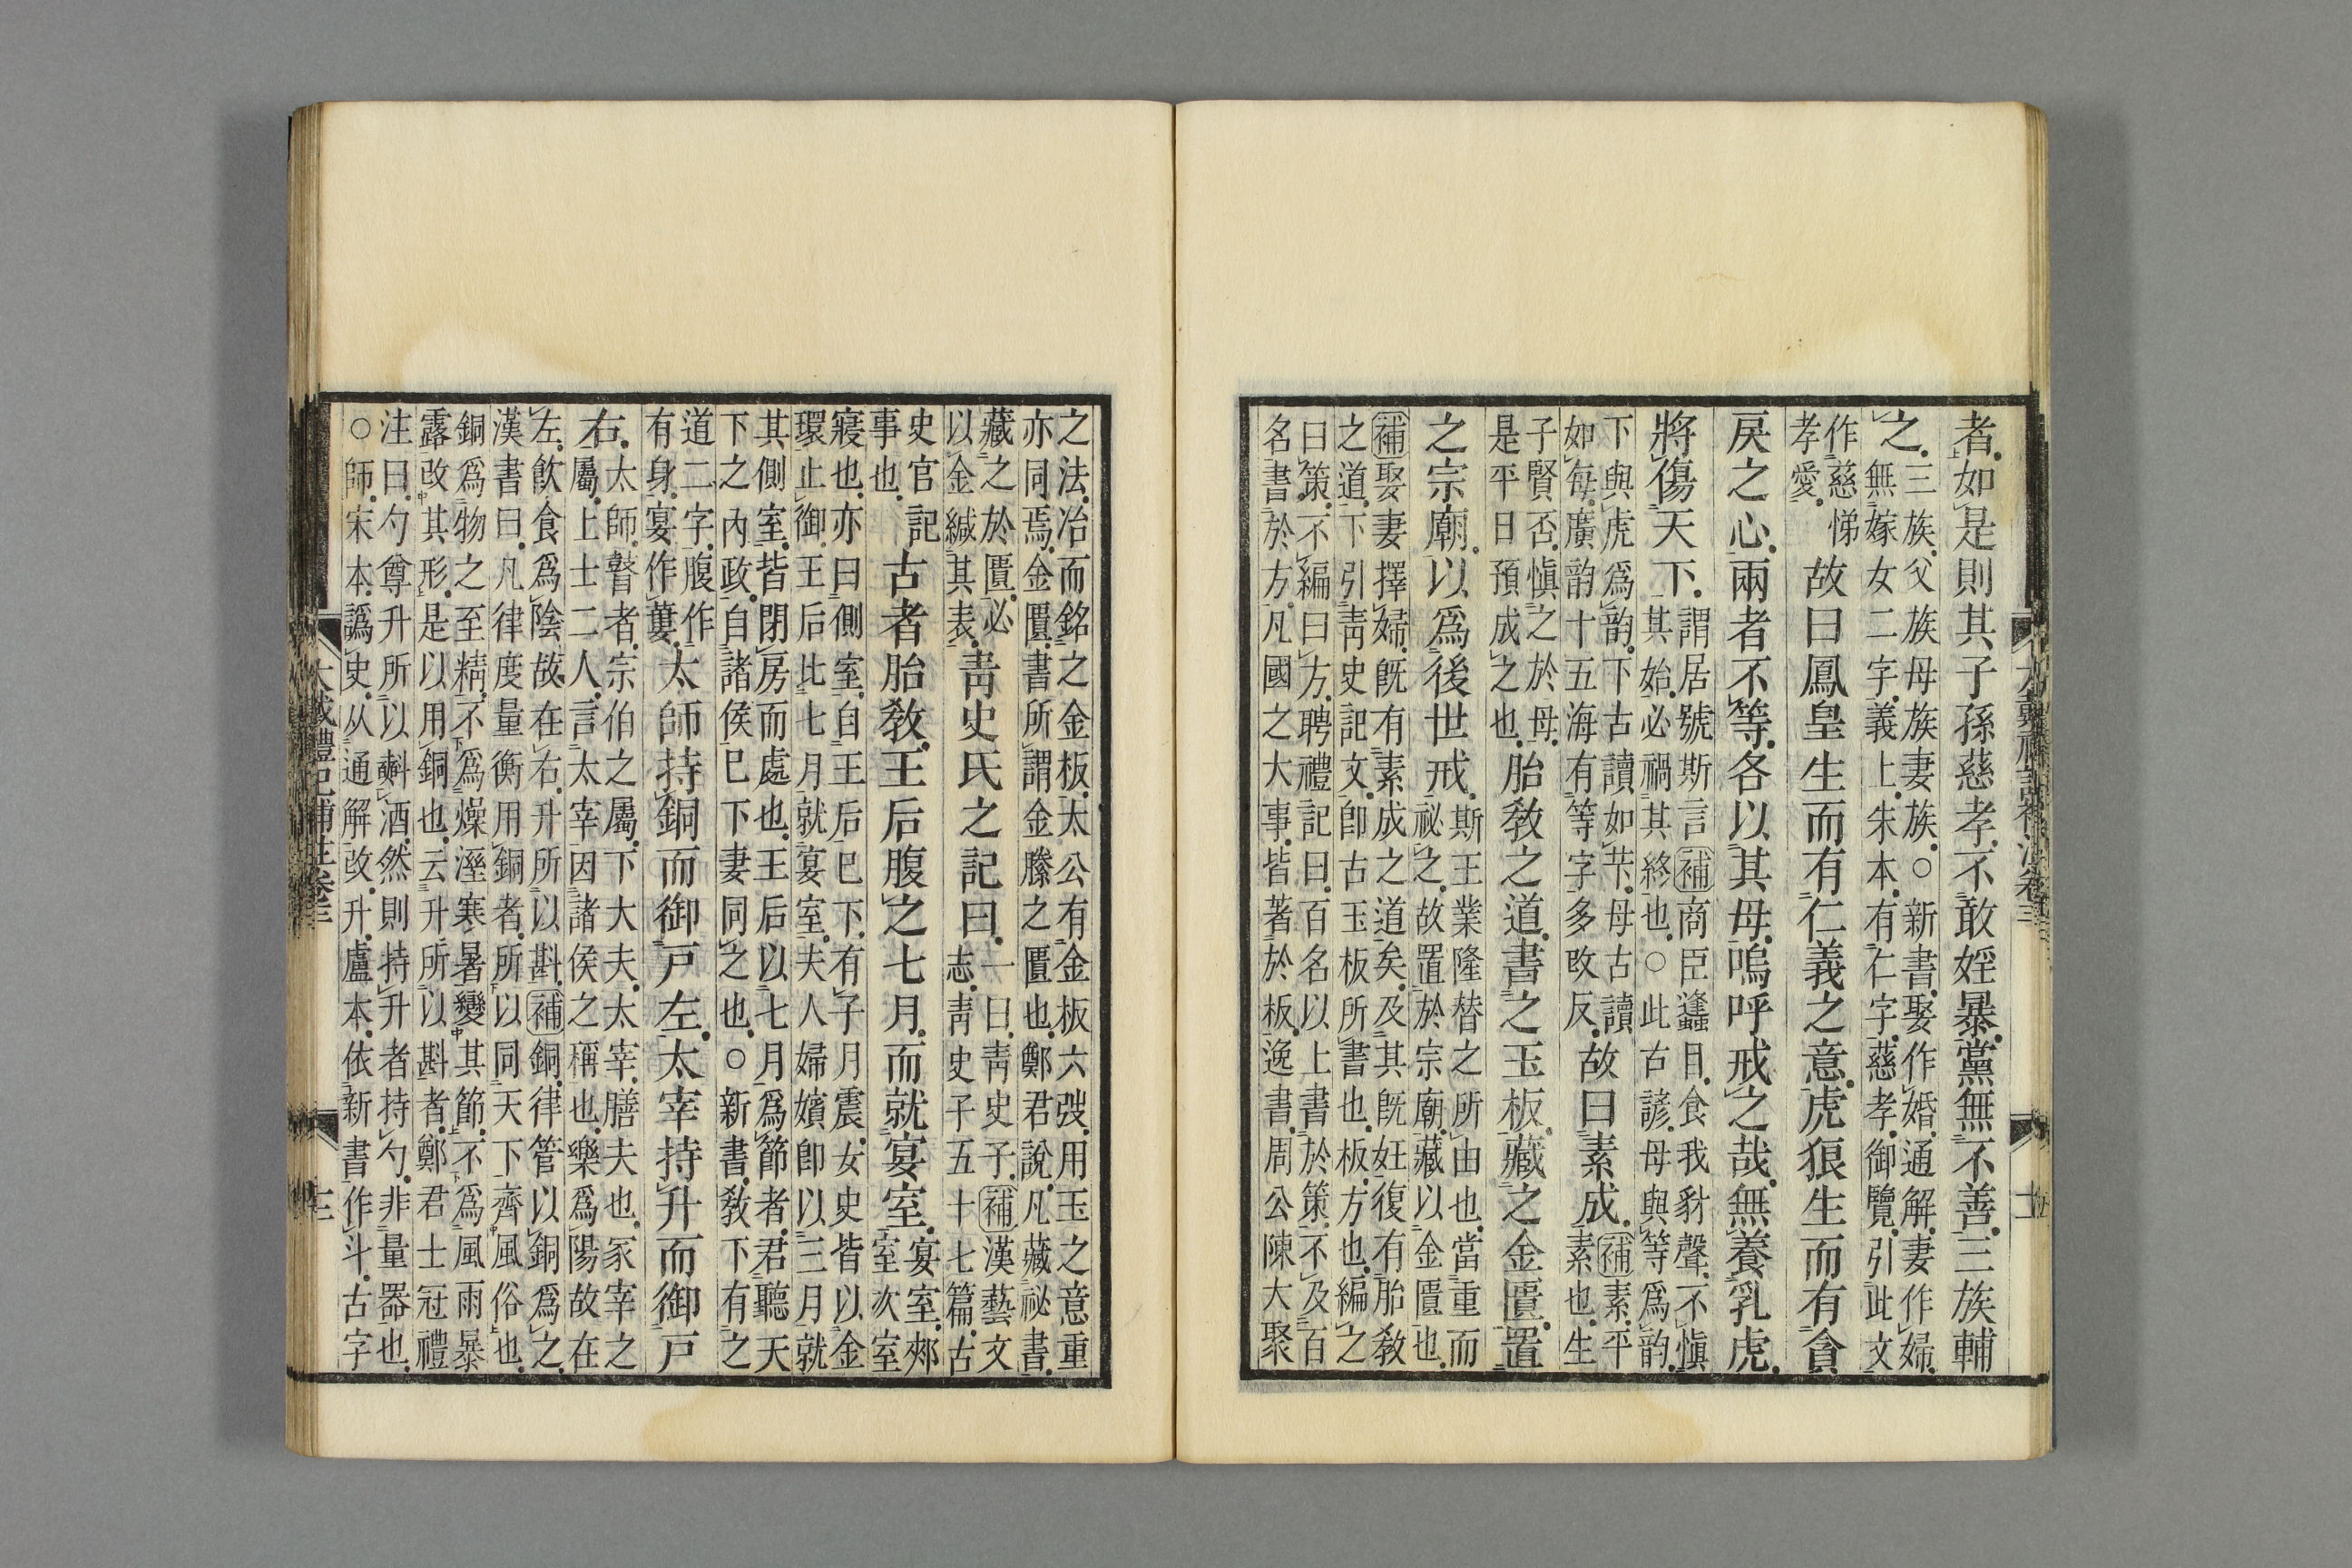 者如是則其子孫慈孝不敢婬暴黨無不善三族輔
之三族父族母族妻族○新書娶作婚通解妻作婦
無嫁女二字義上朱本有仁字慈孝御覽引此文
作慈悌
孝愛
故曰鳳皇生而有仁義之意虎狼生而有貪
戾之心兩者不等各以其母嗚呼戒之哉無養乳虎
將傷天下
謂居號斯言補商臣蠭目食我豺聲不愼
其始必禍其終也○此古諺母與等爲韵
下與虎爲韵下古讀如苄母古讀
如每廣韵十五海有等字多改反
故曰素成
補素平
素也生
子賢否愼之於母
是平日預成之也
胎敎之道書之玉板藏之金匱置
之宗廟以爲後世戒
斯王業隆替之所由也當重而
祕之故置於宗廟藏以金匱也
補娶妻擇婦旣有素成之道矣及其旣妊復有胎敎
之道下引靑史記文卽古玉板所書也板方也編之
曰策不編曰方聘禮記曰百名以上書於策不及百
名書於方凡國之大事皆著於板逸書周公陳大聚
之法冶而銘之金板太公有金板六弢用玉之意重
亦同焉金匱書所謂金縢之匱也鄭君說凡藏祕書
藏之於匱必
以金緘其表
靑史氏之記曰
一曰靑史子補漢藝文
志靑史子五十七篇古
史官記
事也
古者胎敎王后腹之七月而就宴室
宴室郟
室次室
寢也亦曰側室自王后已下有子月震女史皆以金
環止御王后比七月就宴室夫人婦嬪卽以三月就
其側室皆閉房而處也王后以七月爲節者君聽天
下之內政自諸侯已下妻同之也○新書敎下有之
道二字腹作
有身宴作蔞
太師持銅而御戸左太宰持升而御戸
右太師瞽者宗伯之屬下大夫太宰膳夫也冢宰之
屬上士二人言太宰因諸侯之稱也樂爲陽故在
左飮食爲陰故在右升所以斟補銅律管以銅爲之
漢書曰凡律度量衡用銅者所以同天下齊風俗也
銅爲物之至精不爲燥溼寒暑變其節不爲風雨暴
露改其形是以用銅也云升所以斟者鄭君士冠禮
注曰勺尊升所以㪺酒然則持升者持勺非量器也
○師宋本譌史从通解改升盧本依新書作斗古字
大戴禮記補注卷三